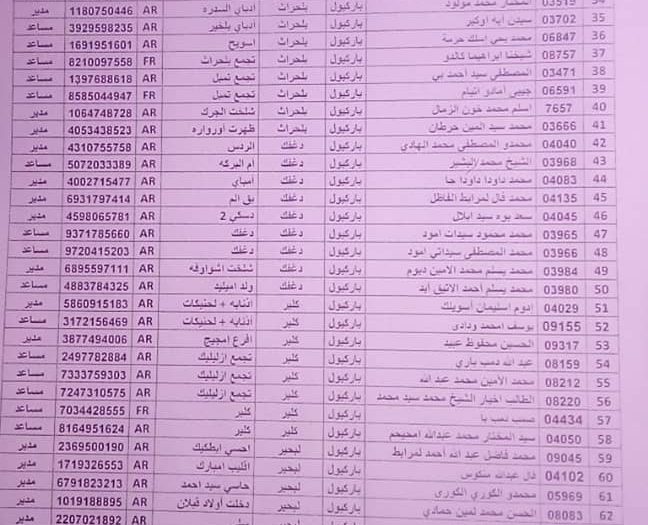 34 03519 المختار محمد مولود باركيول بلحراث ادباي السدره AR 1180750446 مدير
35 03702 سيدن ابه اوكير باركيول بلحراث ادباي بلخير AR 3929598235 مساعد
36 06847 محمد يحي اسلك حرمة باركيول بلحراث اسويح AR 1691951601 مساعد
37 08757 شيخنا ابراهيما كاندو باركيول بلحراث تجمع بلحراث FR 8210097558 مساعد
38 03471 المصطفى سيد أحمد بي باركيول بلحراث تجمع تمبل AR 1397688618 مساعد
39 06591 جيبي آمادو اتيام باركيول بلحراث تجمع تمبل FR 8585044947 مساعد
40 7657 اسلم محمد خون الزمال باركيول بلحراث شلخت الجرك AR 1064748728 مدير
41 03666 محمد سيد المين حرطان باركيول بلحراث ظهرت اورواره AR 4053438523 مدير
42 04040 محمدو المصطفى محمد الهادي باركيول دغفك الردس AR 4310755758 مدير
43 03968 الشيخ محمد البشير باركيول دغفك ام البركه AR 5072033389 مساعد
44 04083 محمد داودا داودا جا باركيول دغفك امباي AR 4002715477 مدير
45 04135 محمد فال لمرابط الفاظل باركيول دغفك بق الم AR 6931797414 مدير
46 04045 سعد بوه سيد ابلال باركيول دغفك دسكي 2 AR 4598065781 مدير
47 03965 محمد محمود سيدات امود باركيول دغفك دغفك AR 9371785660 مساعد
48 03966 محمد المصطفى سيداتي امود باركيول دغفك دغفك AR 9720415203 مساعد
49 03984 محمد يسلم محمد الامين ديوم باركيول دغفك شلخت اشواوفه AR 6895597111 مدير
50 03980 محمد يسلم أحمد الاثيق ابد باركيول دغفك ولد امبليد AR 4883784325 مساعد
51 04029 إدوم اسليمان أسويلك باركيول كلير ادبابه + لحنيكات AR 5860915183 مدير
52 09155 يوسف امحمد ودادي باركيول كلير ادبابه + لحنيكات AR 3172156469 مساعد
53 09317 الحسين محفوظ عبيد باركيول كلير افرع امجيج AR 3877494006 مدير
54 08159 عبد الله دمب باري باركيول كلير تجمع ازليليك AR 2497782884 مساعد
55 08212 محمد الأمين محمد عبد الله باركيول كلير تجمع ازليليك AR 7333759303 مساعد
56 08220 الطالب اخيار الشيخ محمد سيد محمد باركيول كلير تجمع ازليليك AR 7247310575 مساعد
57 04434 صمب دمب با باركيول كلير كلير FR 7034428555 مساعد
58 04050 سيد المختار محمد عبدالله امحيحم باركيول كلير كلير AR 8164951624 مساعد
59 09045 محمد فاضل عبد الله أحمد لمرابط باركيول لبحير احسي ابطكيك AR 2369500190 مدير
60 04102 فال عبدالله سكوس باركيول لبحير اقليب امبارك AR 1719326553 مدير
61 05969 محمدو الكوري الكوري باركيول لبحير حاسي سيد احمد AR 6791823213 مدير
62 08083 الحسن محمد لمين حمادي باركيول لبحير دخلت اولاد فملان AR 1019188895 مدير
AR 2207021892 مدير